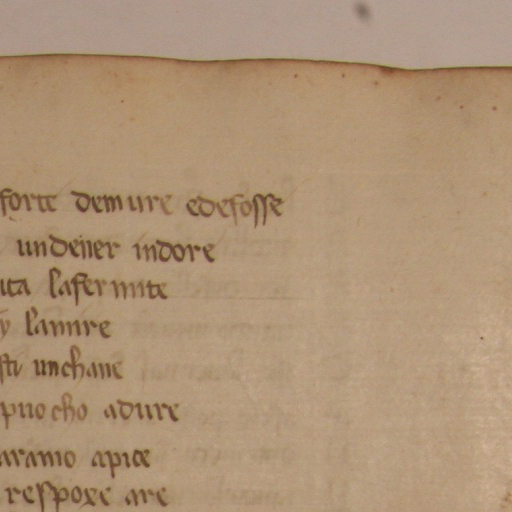 forte demure edefosse
undener indore
ita lafermite
y lamire
sti unchane
puocho adure
aramo apice
respoxe are